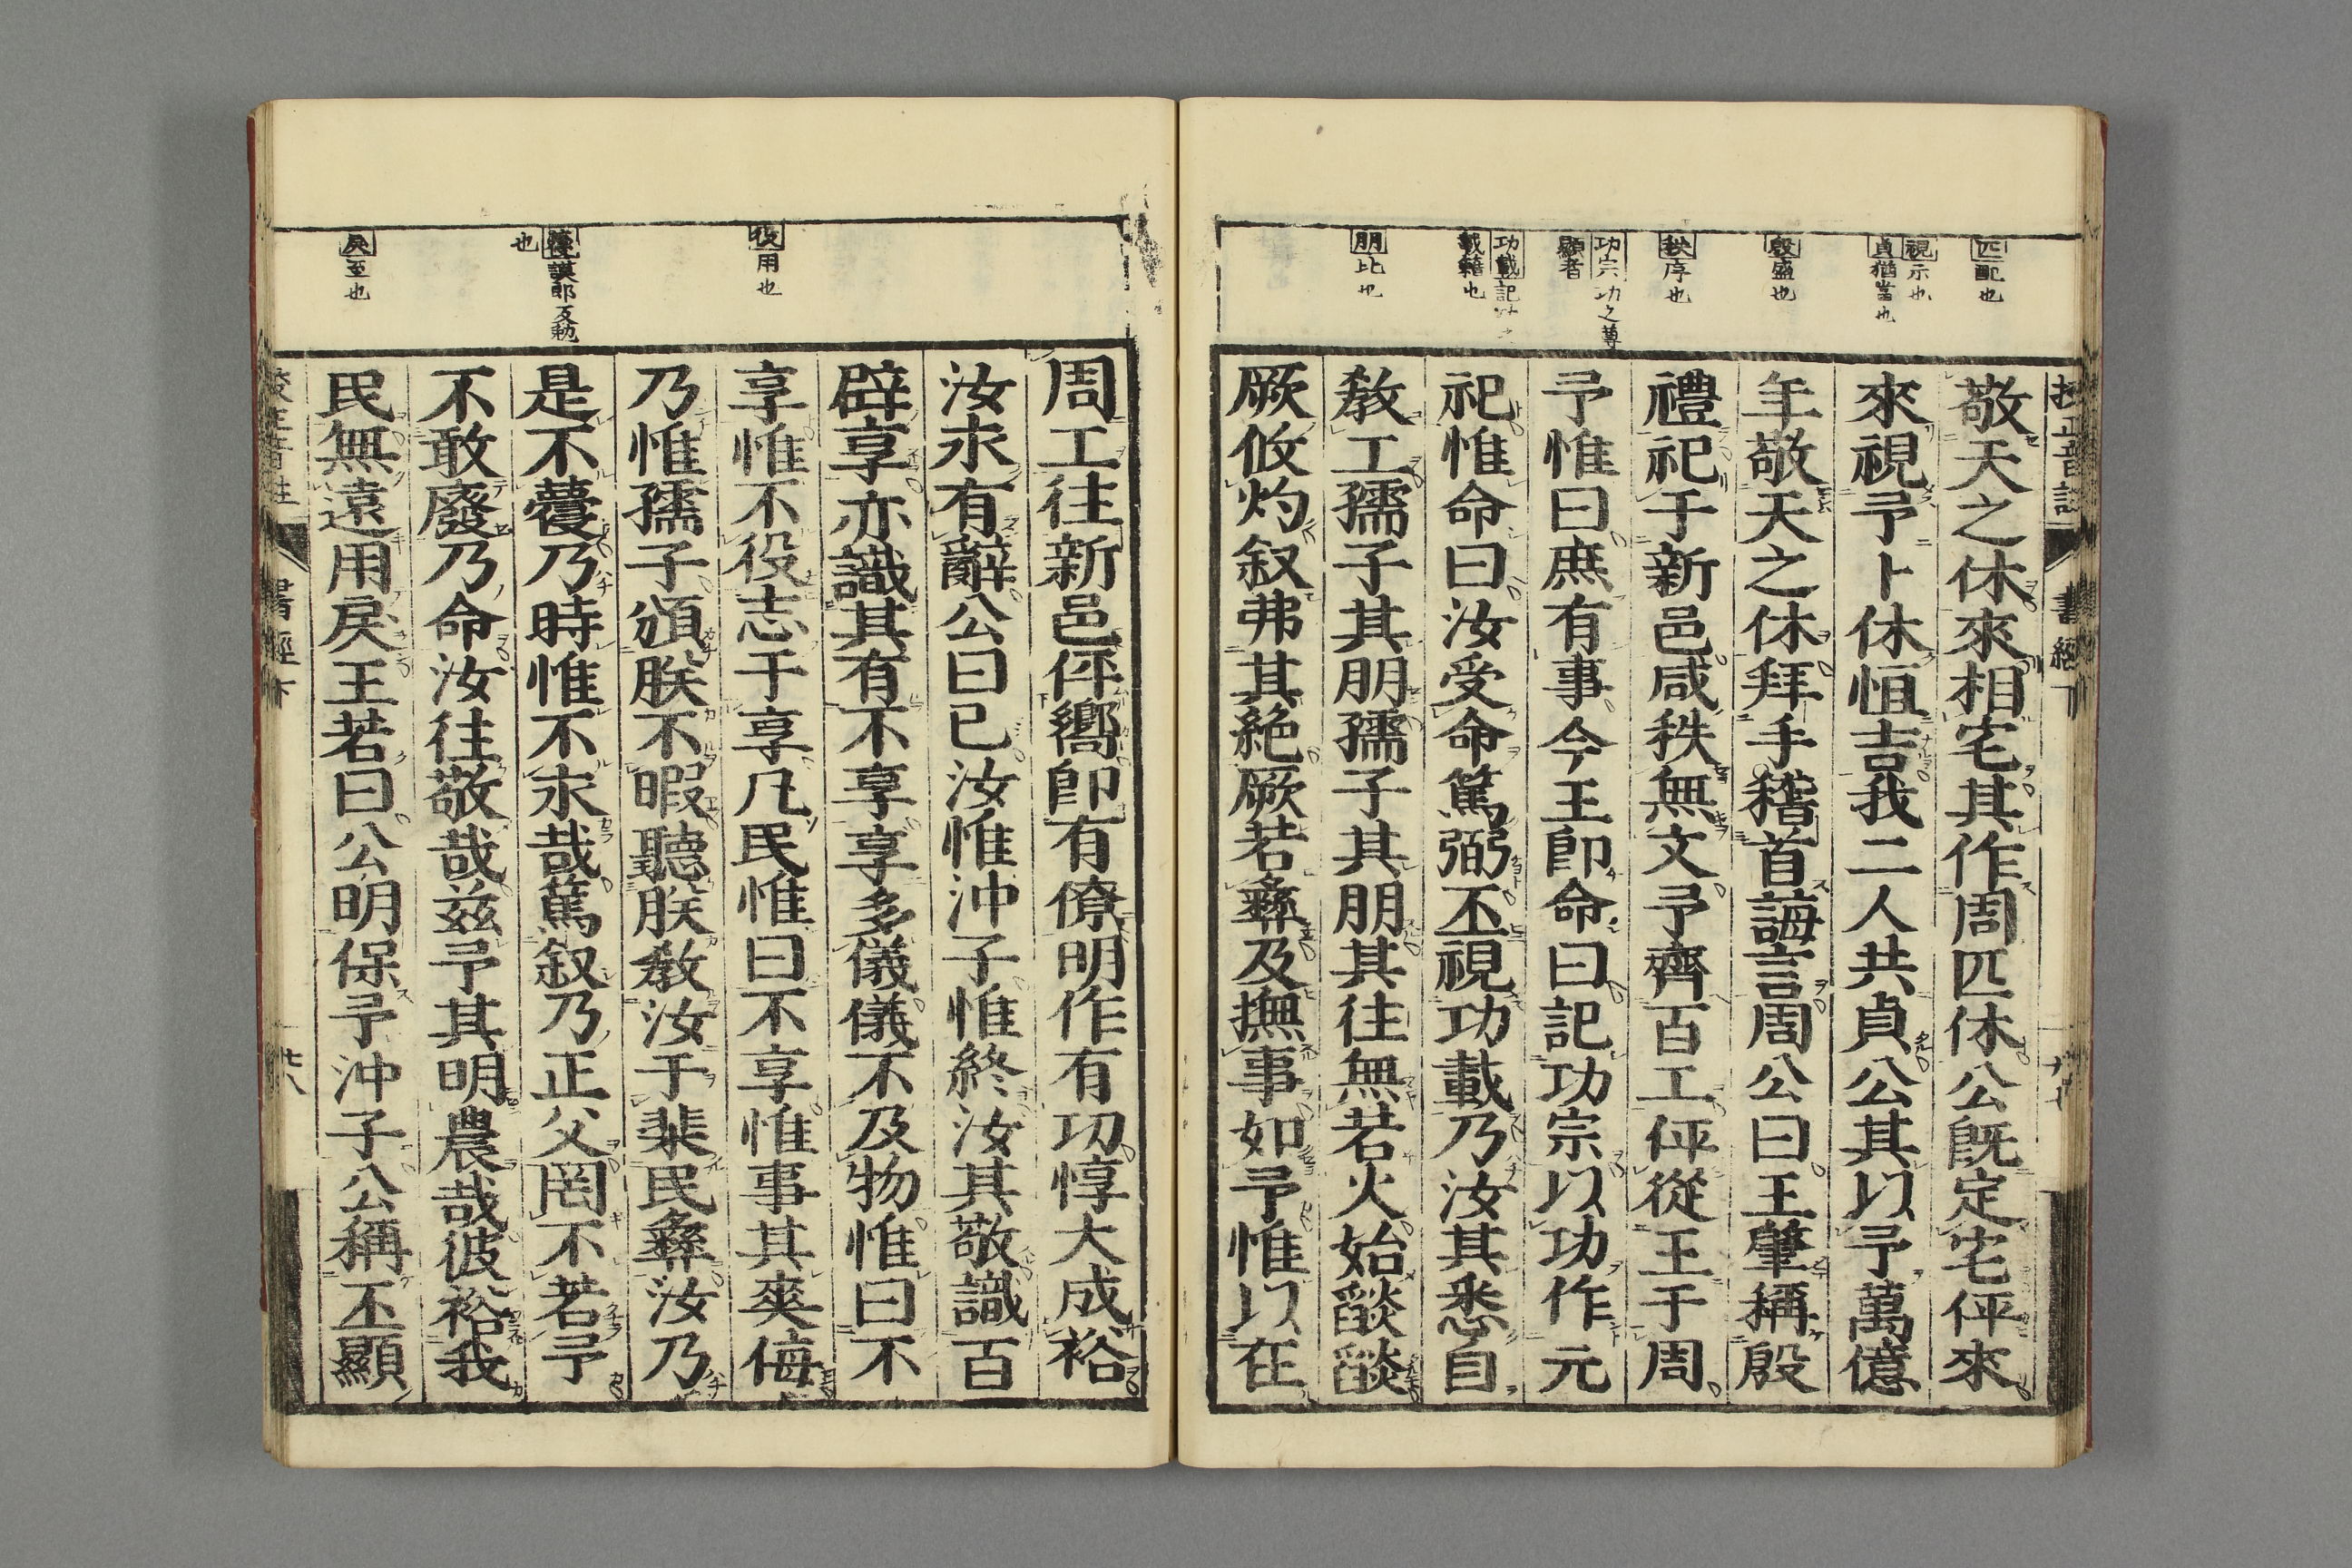 匹配也
視示也
貞猶當也
殷盛也
秩序也
功宗功之尊
顯者
功載記
載籍也
朋比也
敬天之休來相宅其作周匹休公既定宅伻來
來視予卜休恒吉我二人共貞公其以予萬億
年敬天之休拜手稽首誨言周公曰王肇稱殷
禮祀于新邑咸秩無文予齊百工伻從王于周
予惟曰庶有事今王卽命曰記功宗以功作元
祀惟命曰汝受命篤弼丕視功載乃汝其悉自
教工孺子其朋孺子其朋其往無若火始燄燄
厥攸灼叙弗其絶厥若彝及撫事如予惟以在
役用也
蘉謨郎反勉
也
戾至也
周工往新邑伻嚮卽有僚明作有功惇大成裕
汝永有辭公曰已汝惟沖子惟終汝其敬識百
辟享亦識其有不享享多儀儀不及物惟曰不
享惟不役志于享凡民惟曰不享惟事其爽侮
乃惟孺子頒朕不暇聽朕教汝于棐民彝汝乃
是不蘉乃時惟不永哉篤叙乃正父罔不若予
不敢廢乃命汝往敬哉兹予其明農哉彼裕我
民無遠用戾王若曰公明保予沖子公稱丕顯
書經下